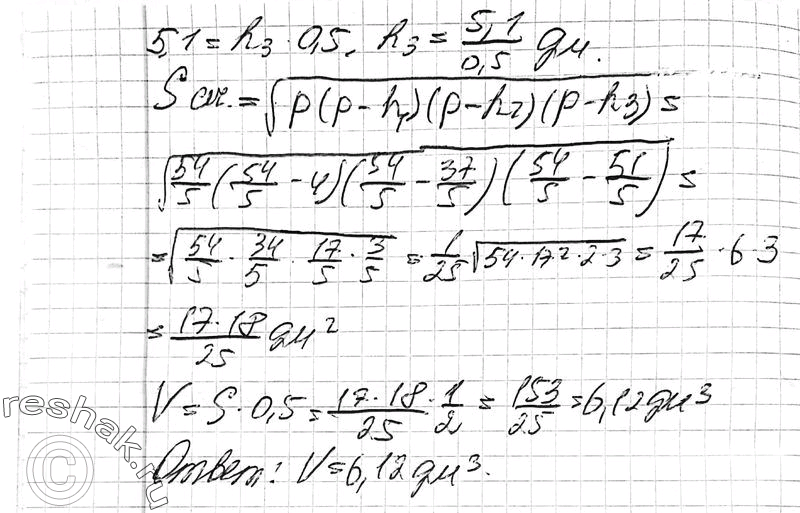 5,1 = h₃ · 0,5, h₃ = 5,1/0,5 дм.
S сеч. = √(p(p − h₁)(p − h₂)(p − h₃)) =
√(54/5 (54/5 − 4)(54/5 − 37/5)(54/5 − 51/5)) =
= √(54/5 · 34/5 · 17/5 · 3/5) = 1/25 √(54 · 17² · 2 · 3) = 17/25 · 6 · 3
= 17·18/25 дм²
V = S · 0,5 = 17·18/25 · 1/2 = 153/25 = 6,12 дм³
Ответ: V = 6,12 дм³.
©reshak.ru